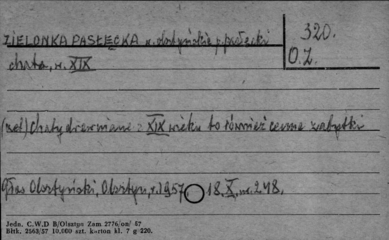 ZIELONKA PASŁĘCKA w. olsztyńskie p. pasłęcki
320.
O.Z.
chata, w. XIX
(zet) Chaty drewniane z XIX wieku to również cenne zabytki
Głos Olsztyński, Olsztyn, r. 1957 18. X, nr. 248.
Jedn. C.W.D B/Olsztyn Zam 2776/on/ 57
Bltk. 2563/57 10.000 szt. karton kl. 7 g 220.